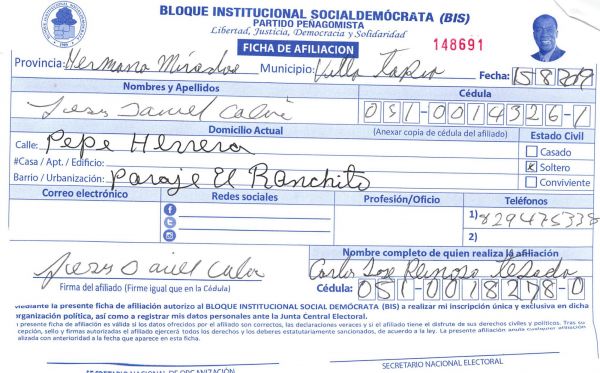 BLOQUE INSTITUCIONAL SOCIALDEMÓCRATA (BIS)
PARTIDO PEÑAGOMISTA
Libertad, Justicia, Democracia y Solidaridad
FICHA DE AFILIACION
148691
Provincia: Hermana Mirabal Municipio: Villa Tapia Fecha: 15/8/2019
Nombres y Apellidos Cédula
Jesus Daniel 051-0014326-1
Domicilio Actual (Anexar copia de cédula del afiliado) Estado Civil
Calle: Pepe Herrera Casado
#Casa / Apt. / Edificio: x Soltero
Barrio / Urbanización: Paraje El Ranchito Conviviente
Correo electrónico Redes sociales Profesión/Oficio Teléfonos
1) 829475338
2)
Nombre completo de quien realiza la afiliación
Jesus Daniel Carlos Jose Reinoso Tejada
Firma del afiliado (Firme igual que en la Cédula) Cédula: 051-0018278-0
Mediante la presente ficha de afiliación autorizo al BLOQUE INSTITUCIONAL SOCIAL DEMÓCRATA (BIS) a realizar mi inscripción única y exclusiva en dicha
organización política, así como a registrar mis datos personales ante la Junta Central Electoral.
presente ficha de afiliación es válida si los datos ofrecidos por el afiliado son correctos, las declaraciones veraces y si el afiliado tiene el disfrute de sus derechos civiles y políticos. Tras su
cepción, sello y firmas autorizadas el afiliado ejercerá todos los derechos y los deberes estatutariamente sancionados, de acuerdo a la ley. La presente afiliación anula cualquier afiliación
alizada con anterioridad a la fecha que aparece en esta ficha.
SECRETARIO NACIONAL DE ORGANIZACIÓN SECRETARIO NACIONAL ELECTORAL